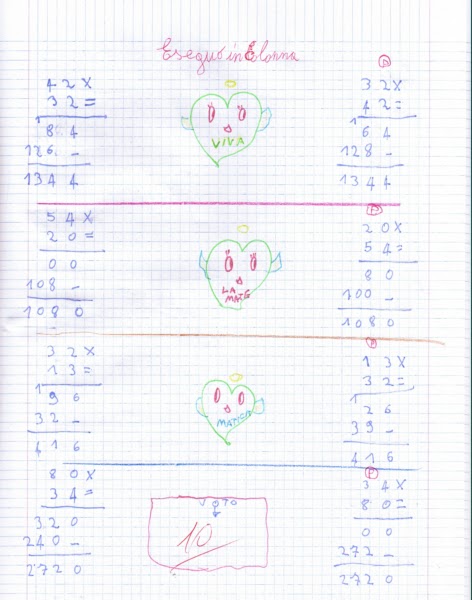 Eseguo in Colonna
4 2 X
3 2 =
1
8 4
1 2 6 -
1 3 4 4
VIVA
P
3 2 X
4 2 =
1
6 4
1 2 8 -
1 3 4 4
5 4 X
2 0 =
0 0
1 0 8 -
1 0 8 0
LA
MATE
P
2 0 X
5 4 =
8 0
1 0 0 -
1 0 8 0
3 2 X
1 3 =
1
9 6
3 2 -
4 1 6
MATICA
P
1 3 X
3 2 =
1
2 6
3 9 -
4 1 6
8 0 X
3 4 =
3 2 0
2 4 0 -
2 7 2 0
VOTO
10
P
3 4 X
8 0 =
0 0
2 7 2 -
2 7 2 0